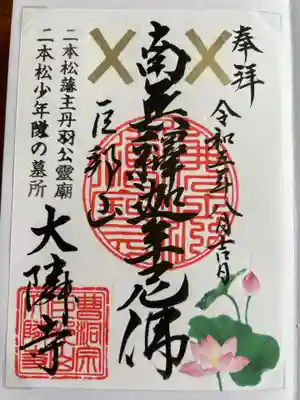 奉拝
令和五年八月吉日
南無釋迦牟尼佛
巨邦山
二本松藩主丹羽公霊廟
二本松少年隊の墓所
大隣寺